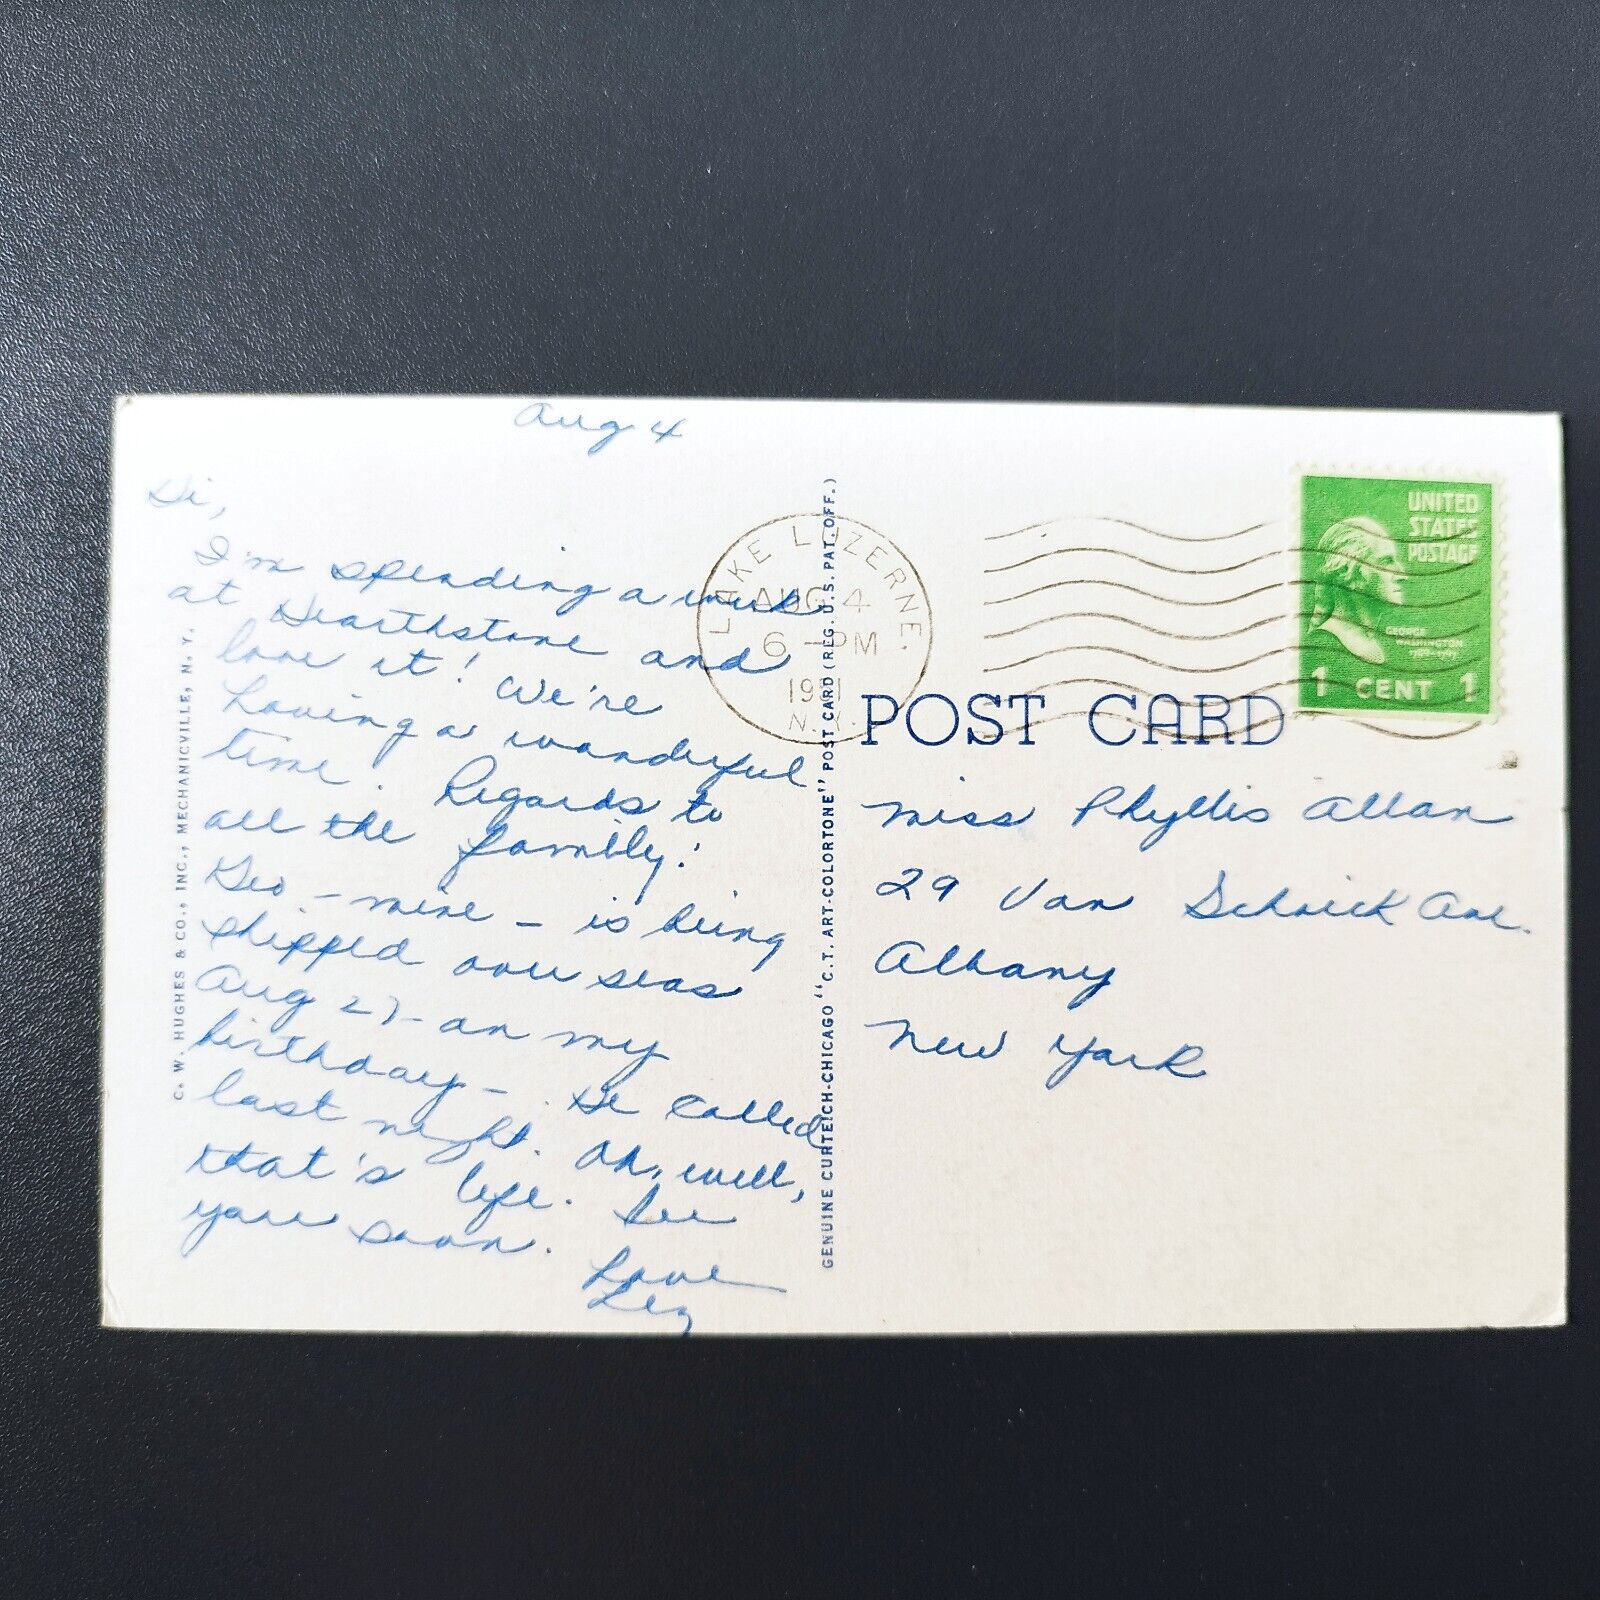 Aug 4
Hi,
I'm spending a week
at Hearthstone and
love it! We're
having a wonderful
time. Regards to
all the family!
Geo - mine - is being
shipped over seas
Aug 27 - on my
birthday - He called
last night. Oh, well,
that's life. See
you soon.
Love
Lez
C. W. HUGHES & CO., INC., MECHANICVILLE, N. Y.
GENUINE CURTEICH-CHICAGO "C.T. ART-COLORTONE" POST CARD (REG. U.S. PAT. OFF.)
LAKE LUZERNE.
AUG 4
6 - PM
N.Y.
UNITED
STATES
POSTAGE
GEORGE
WASHINGTON
1789-1797
1 CENT 1
POST CARD
Miss Phyllis Allan
29 Van Schoick Ave.
Albany
New York